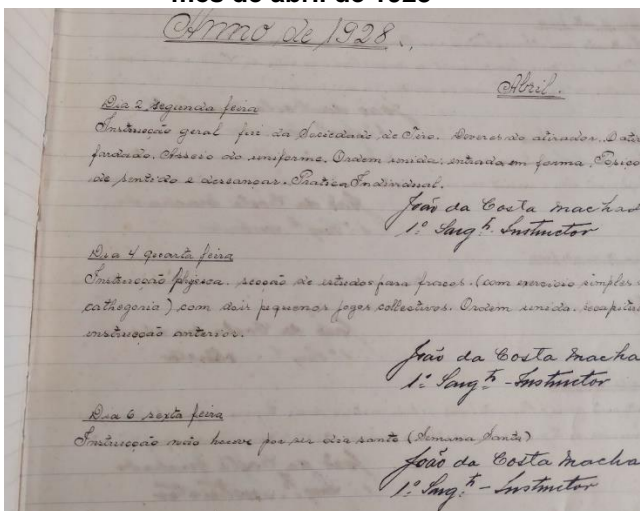 mês de abril de 1928
Anno de 1928.,
Abril.
Dia 2 segunda feira
Instrucção geral fin da Sociedade de Tiro. Deveres do atirador. O atir
fardado. Asseio do uniforme. Ordem unida: entrada em forma, Posiçõ
de sentido e descançar. Pratica Individual.
João da Costa Machad
1º Sargtº. Instructor
Dia 4 quarta feira
Instrucção physica. secção de estudos para fracos. (com exercicio simples
cathegoria) com dois pequenos jogos collectivos. Ordem unida. recapitu
instrucção anterior.
João da Costa Macha
1º Sargtº - Instructor
Dia 6 sexta feira
Instrucção não houve por ser dia santo (Semana Santa)
João da Costa Macha
1º Sargtº - Instructor